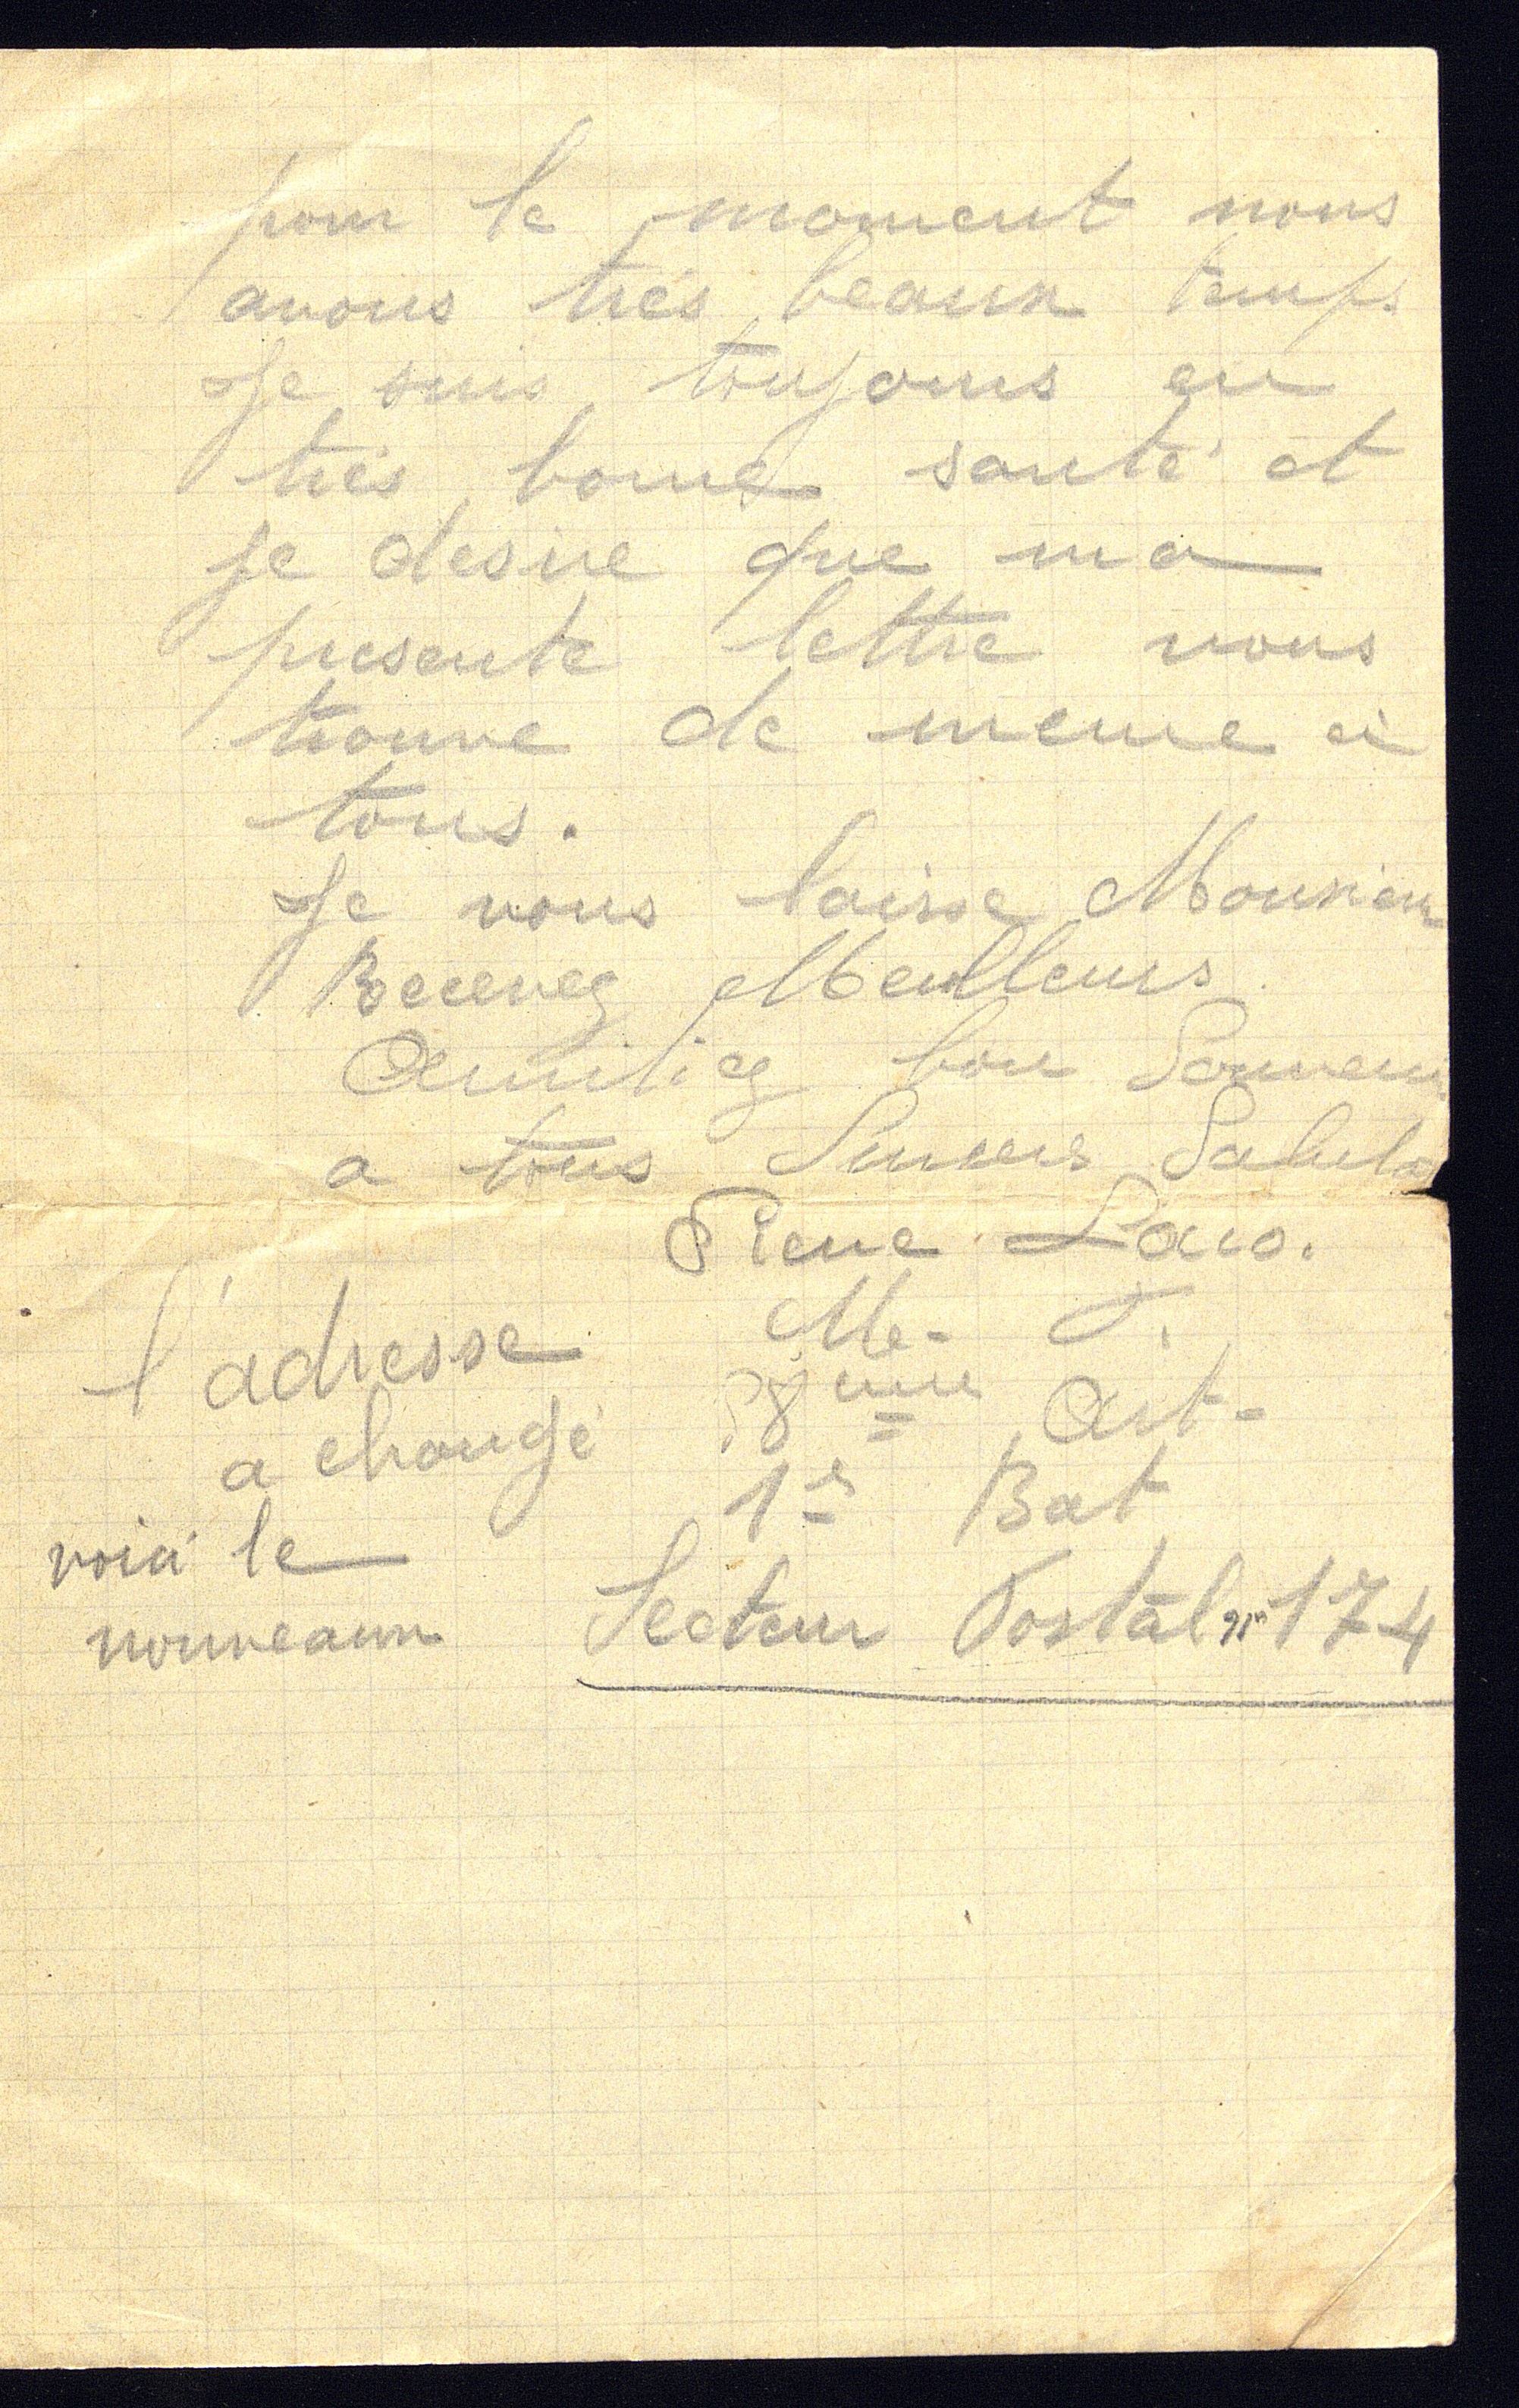 pour le moment nous
avons trés beaux temps
Je suis toujours en
trés bonne santé et
je desire que ma
presente lettre vous
trouve de meme a
tous.
Je vous laisse Monsieur
Recevez Meilleurs
Amitiez bon Souvenir
a tous Sinceres Saluts
Pierre Laro.
Me- T.
l'adresse
38eme Art-
a changé
1er Bat
voici le
Secteur Postal n° 174
nouveaux